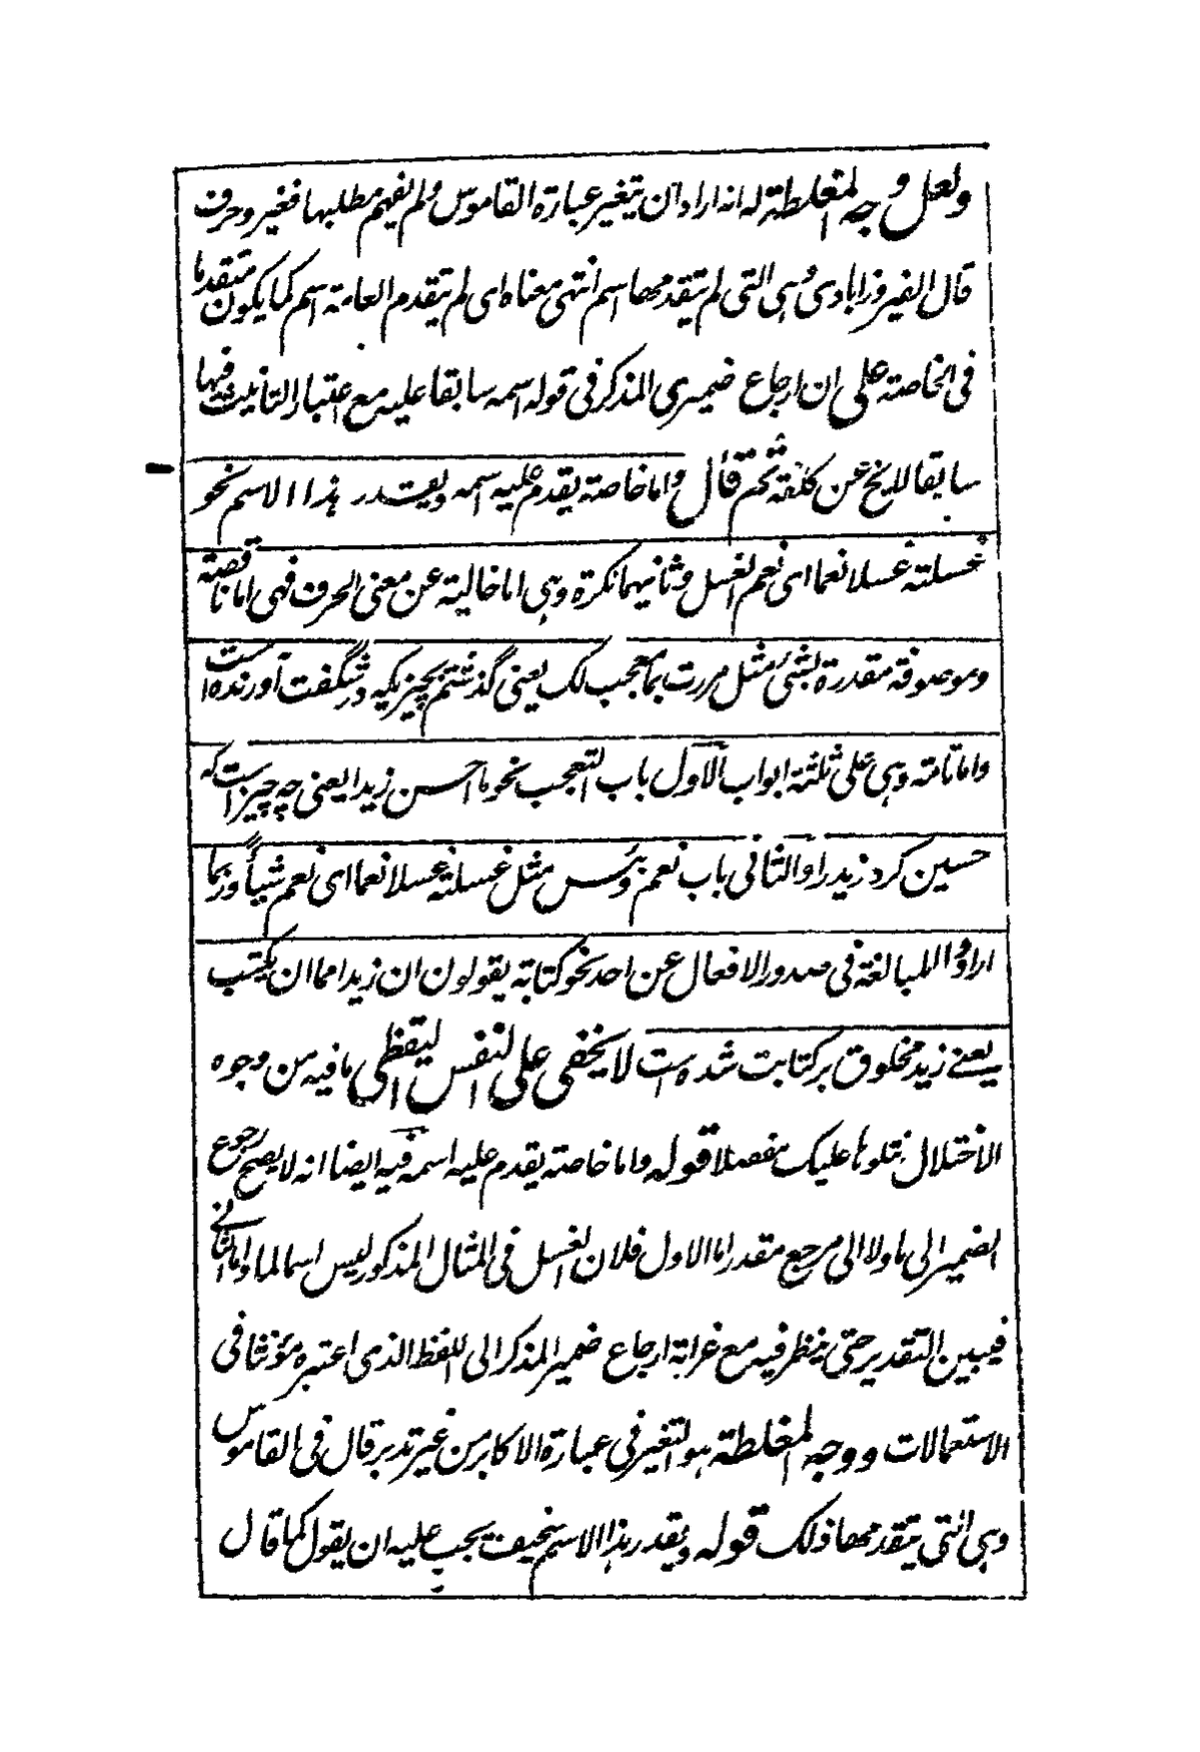 ولعل وجه المغلطة له انه اراد ان يتغير عبارة القاموس ولم يفهم مطلبها فغير وحرف
قال الفيروزابادى وهى التى لم يتقدمها اسم انتهى معناه اى لم يتقدم العامة اسم كما يكون متقدما
فى الخاصة على ان ارجاع ضميرى المذكر فى قوله اسمه سابقا عليه مع اعتبار التانيث فيها
سابقا لا يخ عن كلفة ثم قال واما خاصة يقدم عليه اسمه ويقدر هذا الاسم نحو
غسلته غسلا نعما اى نعم الغسل وثانيهما نكرة وهى اما خالية عن معنى الحرف فهى اما ناقصة
وموصوفة مقدرة بشئ مثل مررت بما معجب لک يعنى گذشتم بچيزيكه در شگفت آورنده است
واما تامة وهى على ثلثة ابواب الاول باب التعجب نحو ما احسن زيدا يعنى چه چيز است كه
حسين كرد زيد را والثانى باب نعم وبئس مثل غسلته غسلا نعما اى نعم شيأ وربما
ارادوا المبالغة فى صدور الافعال عن احد نحو كتابة يقولون ان زيدا مما ان يكتب
يعنے زيد مخلوق بر كتابت شده است لا يخفى على النفس اليقظى ما فيه من وجوه
الاختلال نتلوها عليک مفصلا قوله واما خاصة يقدم عليه اسمه فيه ايضا انه لا يصح رجوع
الضمير الى ما ولا الى مرجع مقدر اما الاول فلان الغسل فى المثال المذكور ليس اسما لما واما الثانے
فيبين التقدير حتى ينظر فيه مع غرابة ارجاع ضمير المذكر الى اللفظ الذى اعتبره مؤنثا فى
الاستعمالات و وجه المغلطة هو التغير فى عبارة الاكابر من غير تدبر قال فى القاموس
وهى التى يتقدمها ذلک قوله ويقدر هذا الاسم سخيف يجب عليه ان يقول كما قال